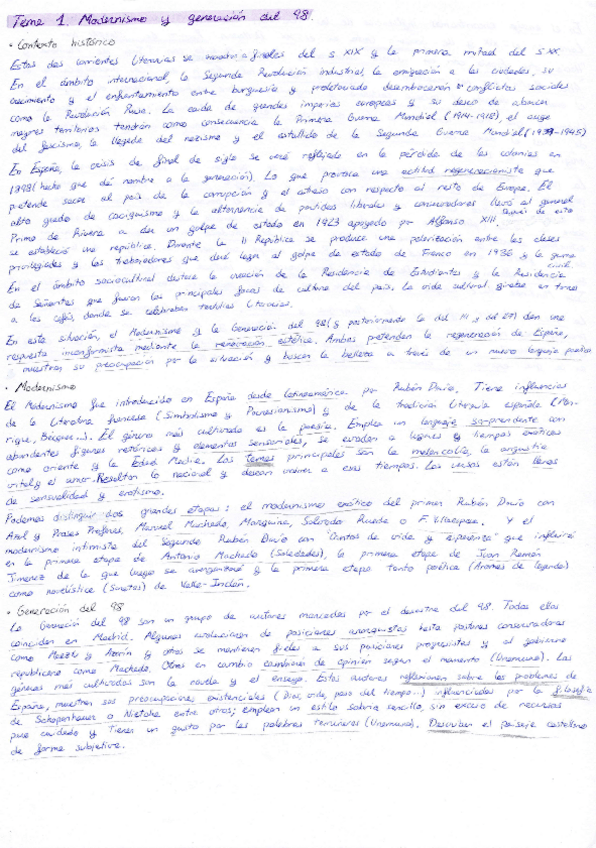 Tema 1. Modernismo y generación del 98.
• Contexto histórico
Estas dos corrientes literarias se muestran a finales del s XIX y la primera mitad del s XX.
En el ámbito internacional, la Segunda Revolución industrial, la emigración a las ciudades, su
crecimiento y el enfrentamiento entre burguesía y proletariado desembocarán en conflictos sociales
como la Revolución Rusa. La caída de grandes imperios europeos y su deseo de abarcar
mayores territorios tendrán como consecuencia la Primera Guerra Mundial (1914-1918), el auge
del fascismo, la llegada del nazismo y el estallido de la Segunda Guerra Mundial (1939-1945)
En España, la crisis de final de siglo se verá reflejada en la pérdida de las colonias en
1898 (hecho que da nombre a la generación). Lo que provoca una actitud regeneracionista que
pretende sacar al país de la corrupción y el atraso con respecto al resto de Europa. El
alto grado de caciquismo y la alternancia de partidos liberales y conservadores llevó al general
Primo de Rivera a dar un golpe de estado en 1923 apoyado por Alfonso XIII. Después de esto
se estableció una república. Durante la II República se produce una polarización entre las clases
privilegiadas y los trabajadores que dará lugar al golpe de estado de Franco en 1936 y la guerra
civil.
En el ámbito sociocultural destaca la creación de la Residencia de Estudiantes y la Residencia
de Señoritas que fueron los principales focos de cultura del país. La vida cultural giraba en torno
a los cafés, donde se celebraban tertulias literarias.
En esta situación, el Modernismo y la Generación del 98 (y posteriormente la del 14 y del 27) dan una
respuesta inconformista mediante la renovación estética. Ambas pretenden la regeneración de España,
muestran su preocupación por la situación y buscan la belleza a través de un nuevo lenguaje poético
• Modernismo
El Modernismo fue introducido en España desde Latinoamérica por Rubén Darío. Tiene influencias
de la literatura francesa (Simbolismo y Parnasianismo) y de la tradición literaria española (Man-
rique, Bécquer...). El género más cultivado es la poesía. Emplea un lenguaje sorprendente con
abundantes figuras retóricas y elementos sensoriales, se evaden a lugares y tiempos exóticos
como oriente y la Edad Media. Los temas principales son la melancolía, la angustia
vital y el amor. Resaltan lo nacional y desean volver a esos tiempos. Los versos están llenos
de sensualidad y erotismo.
Podemos distinguir dos grandes etapas: el modernismo exótico del primer Rubén Darío con
Azul y Prosas Profanas, Manuel Machado, Marquina, Salvador Rueda o F. Villaespesa. Y el
modernismo intimista del Segundo Rubén Darío con "Cantos de vida y esperanza" que influirá
en la primera etapa de Antonio Machado (Soledades), la primera etapa de Juan Ramón
Jiménez de la que luego se avergonzará y la primera etapa tanto poética (Aromas de leyenda)
como novelística (Sonatas) de Valle-Inclán.
• Generación del 98
La Generación del 98 son un grupo de autores marcados por el desastre del 98. Todos ellos
coinciden en Madrid. Algunos evolucionan de posiciones anarquistas hasta posturas conservadoras
como Maeztu y Azorín y otros se mantienen fieles a sus posiciones progresistas y al gobierno
republicano como Machado. Otros en cambio cambian de opinión según el momento (Unamuno). Los
géneros más cultivados son la novela y el ensayo. Estos autores reflexionan sobre los problemas de
España, muestran sus preocupaciones existenciales (Dios, vida, paso del tiempo...) influenciados por la filosofía
de Schopenhauer o Nietche entre otros; emplean un estilo sobrio sencillo, sin exceso de recursos
pero cuidado y tienen un gusto por las palabras terruñeras (Unamuno). Describen el paisaje castellano
de forma subjetiva.